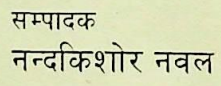 सम्पादक
नन्दकिशोर नवल